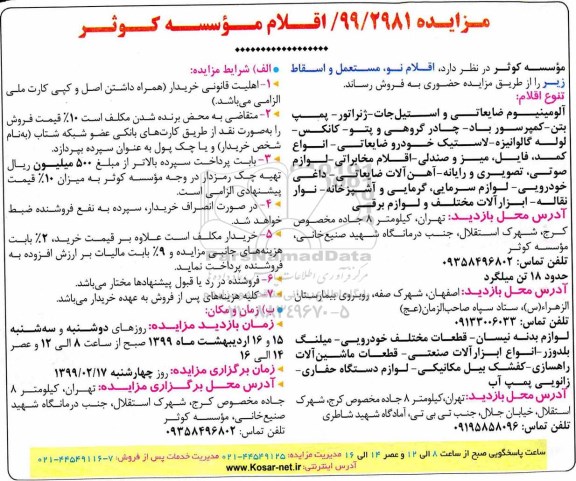 مزایده ۹۹/۲۹۸۱/ اقلام مؤسسه کوثر
مؤسسه کوثر در نظر دارد، اقلام نو، مستعمل و اسقاط
زیر را از طریق مزایده حضوری به فروش رساند.
تنوع اقلام:
آلومینیوم ضایعاتی و استیل‌جات-ژنراتور- پمپ
بتن-کمپرسور باد- چادر گروهی و پتو- کانکس-
لوله گالوانیزه-لاستیک خودرو ضایعاتی- انواع
کمد، فایل، میز و صندلی-اقلام مخابراتی- لوازم
صوتی، تصویری و رایانه-آهن‌آلات ضایعاتی- داغی
خودرویی- لوازم سرمایی، گرمایی و آشپزخانه- نوار
نقاله- ابزارآلات مختلف و لوازم برقی
آدرس محل بازدید: تهران، کیلومتر ۸ جاده مخصوص
کرج، شهرک استقلال، جنب درمانگاه شهید صنیع‌خانی،
مؤسسه کوثر
تلفن تماس: ۰۹۳۵۸۴۹۶۸۰۲
حدود ۱۸ تن میلگرد
آدرس محل بازدید: اصفهان، شهرک صفه، روبروی بیمارستان
الزهراء(س)، ستاد سپاه صاحب‌الزمان(عج)
تلفن تماس: ۰۹۱۳۳۰۰۶۰۳۳
لوازم بدنه نیسان- قطعات مختلف خودرویی- میلنگ
بلدوزر-انواع ابزارآلات صنعتی- قطعات ماشین‌آلات
راهسازی-کفشک بیل مکانیکی- لوازم دستگاه حفاری-
زانویی پمپ آب
آدرس محل بازدید: تهران،کیلومتر ۸ جاده مخصوص کرج، شهرک
استقلال، خیابان جلال، جنب تی بی تی، آمادگاه شهید شاطری
تلفن تماس: ۰۹۱۹۵۸۵۸۰۹۶
الف) شرایط مزایده:
۱- اهلیت قانونی خریدار (همراه داشتن اصل و کپی کارت ملی
الزامی می‌باشد.)
۲- متقاضی به محض برنده شدن مکلف است ۱۰٪ قیمت فروش
را به‌صورت نقد از طریق کارت‌های بانکی عضو شبکه شتاب (به‌نام
شخص خریدار) و یا چک پول به عنوان سپرده بپردازد.
۳- بابت پرداخت سپرده بالاتر از مبلغ ۵۰۰ میلیون ریال
تهیه چک رمزدار در وجه مؤسسه کوثر به میزان ۱۰٪ قیمت
پیشنهادی الزامی است.
۴- در صورت انصراف خریدار، سپرده به نفع فروشنده ضبط
خواهد شد.
۵- خریدار مکلف است علاوه بر قیمت خرید، ۲٪ بابت
هزینه‌های جانبی مزایده و ۹٪ بابت مالیات بر ارزش افزوده به
فروشنده پرداخت نماید.
۶- فروشنده در رد یا قبول پیشنهادها مختار می‌باشد.
۷- کلیه هزینه‌های پس از فروش به عهده خریدار می‌باشد.
ب) زمان و مکان:
زمان بازدید مزایده: روزهای دوشنبه و سه‌شنبه
۱۵ و ۱۶ اردیبهشت ماه ۱۳۹۹ صبح از ساعت ۸ الی ۱۲ و عصر
۱۴ الی ۱۶
زمان برگزاری مزایده: روز چهارشنبه ۱۳۹۹/۰۲/۱۷
آدرس محل برگزاری مزایده: تهران، کیلومتر ۸
جاده مخصوص کرج، شهرک استقلال، جنب درمانگاه شهید
صنیع‌خانی، مؤسسه کوثر
تلفن تماس: ۰۹۳۵۸۴۹۶۸۰۲
ساعت پاسخگویی صبح از ساعت ۸ الی ۱۲ و عصر ۱۴ الی ۱۶ مدیریت مزایده: ۰۲۱-۴۴۵۴۹۱۲۵ مدیریت خدمات پس از فروش: ۷-۰۲۱-۴۴۵۴۹۱۱۶
آدرس اینترنتی: www.Kosar-net.ir
ParsNamadData